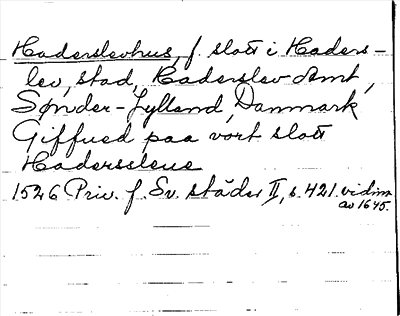 Haderslevhus, f. slott i Haders-
lev, stad, Haderslev Amt,
Sønder-Jylland, Danmark
Giffued paa vort slott
Haderssleue
1526 Priv. f. Sv. städer II, s. 421. vidim.
av 1645.